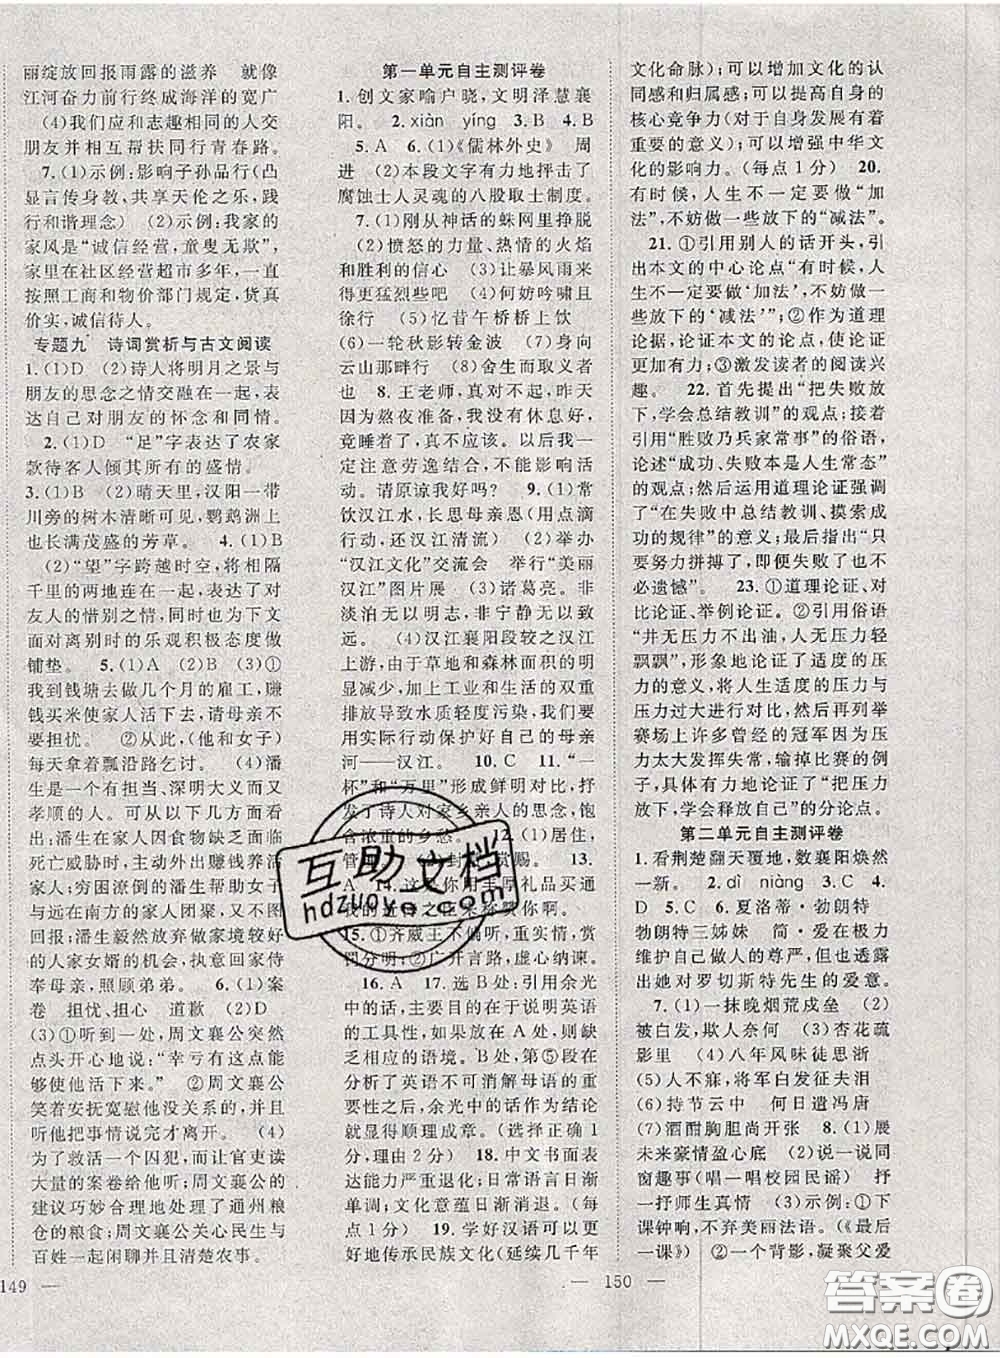 丽绽放回报雨露的滋养　就像
江河奋力前行终成海洋的宽广
(4)我们应和志趣相同的人交
朋友并相互帮扶同行青春路。
7.(1)示例:影响子孙品行(凸
显言传身教,共享天伦之乐,践
行和谐理念)　(2)示例:我家的
家风是“诚信经营,童叟无欺”,
家里在社区经营超市多年,一直
按照工商和物价部门规定,货真
价实,诚信待人。
专题九　诗词赏析与古文阅读
1.(1)D　(2)诗人将明月之景与
朋友的思念之情交融在一起,表
达自己对朋友的怀念和同情。
2.(1)D　“足”字表达了农家
款待客人倾其所有的盛情。
3.(1)B　(2)晴天里,汉阳一带
川旁的树木清晰可见,鹦鹉洲上
长满茂盛的芳草。　4.(1)B
(2)“望”字跨越时空,将相隔
千里的两地连在一起,点出对
友人的惜别之情,也为下文
面对离别时的乐观积极态度做
铺垫。　5.(1)A　(2)C　(3)①
我到钱塘去做几个月的雇工,赚
钱买米使家人活下去,请母亲不
要担忧。　②从此,(他和女子)
每天靠着瓢沿路乞讨。　(4)潘
生是一个有担当、深明大义又
孝顺的人。可从以下几方面看
出:潘生在家人因食物缺乏而面临
死亡威胁时,主动外出打工养活
家人;贫穷潦倒的潘生帮助女子
与远在南方的家人团聚,却不求
回报;潘生毅然放弃做家境较好
人家女婿的机会,执意回家侍
奉母亲,照顾弟弟。　6.(1)案
卷　担忧、担心　道歉　(2)D
(3)①听到一处,周文襄公突然
点头开心地说:“幸亏有这些话能
够活下来。”　②周文襄公
笑着安抚宽慰他没关系的,并
听他把事情说完才离开。　(4)
为了救一个囚犯,而让官吏多读
几遍的案卷给他听;周文襄公
建议巧妙合理地处理了通州粮
仓的粮食;周文襄公关心民生与
百姓一起闲聊并且清楚农事。
149
第一单元自主测评卷
1.创文家喻户晓,文明泽慧襄
阳。　2.xiàn　yíng　3.B　4.B
5.A　6.(1)《儒林外史》　周
进　(2)本段文字有力地抨击了
腐蚀士人灵魂的八股取士制度。
7.(1)刚从神话的蛛网里挣脱
(2)愤怒的力量、热情的火焰
和胜利的信心　(3)让暴风雨来
得更猛烈些吧　(4)何妨吟啸且
徐行　(5)忆昔午桥桥上饮
(6)一轮秋影转金波　(7)身向
云山那畔行　(8)舍生而取义者
也　8.王老师,真对不起,昨天
因为熬夜准备,我没有休息好,
竟睡着了,真不应该。以后我一
定注意劳逸结合,不能影响活
动。请原谅我好吗?　9.(1)常
饮汉江水,长思母亲恩(用点滴
行动,还汉江清流)　(2)举办
“汉江文化”交流会　举行“美丽
汉江”图片展　(3)诸葛亮。非
淡泊无以明志,非宁静无以致
远。　(4)汉江襄阳段较之汉江
上游,由于草地和森林面积的明
显减少,加上工业和生活的双重
排放导致水质轻度污染,我们要用
实际行动保护好自己的母亲
河——汉江。　10.C　11.“一
杯”和“万里”形成鲜明对比,抒
发了诗人对家乡亲人的思念,饱
含浓重的乡愁。　12.(1)居住,
15.①齐威王不偏听,重实情,赏
罚分明;②广开言路,虚心纳谏。
16.A　17.选B处:引用余光
中的话,主要目的在于说明英语
的工具性,如果放在A处,则缺
乏相应的语境。B处,第⑤段在
分析了英语不可低估的功用和重
要性之后,余光中的话作为结论
就显得顺理成章。(选择正确1
分,理由2分)　18.中文书面表
达能力严重退化;汉语言日渐
单调;文化意蕴日渐消退。(每
点1分)　19.学好汉语可以更
好地传承民族文化(延续几千年
150
文化命脉);可以增加文化的认
同感和归属感;可以提高自身的
核心竞争力(对于自身发展有着
重要的意义);可以增强中华文
化的影响力。(每点1分)　20.
有时候,人生不一定要做“加
法”,不妨做一些放下的“减法”。
21.①引用别人的话开头,引
出本文的中心论点“有时候,
人生不一定要做‘加法’,不妨做一
些放下的‘减法’”;②作为道理
论证,论证本文的论点,使论证更有
力;③激发读者的阅读兴
趣。　22.首先提出“把失败放
下,学会总结教训”的观点;接着
引用“胜败乃兵家常事”的俗语,
论述“成功、失败本是人生常态”
的观点;然后运用道理论证强调
了“在失败中总结教训、摸索成
功的规律”的意义;最后指出“尽
力拼搏了,即便失败了也不
必遗憾”。　23.①道理论证、
对比论证、举例论证。②引用俗语
“井无压力不出油,人无压力轻
飘飘”,形象地论证了适度的压力
的意义,将人生适度的压力与
压力过大进行对比,然后再列举
赛场上许多曾经的冠军因为
压力太大发挥失常,输掉比赛的例子,
具体有力地论证了“把压力
放下,学会释放自己”的分论点。
第二单元自主测评卷
1.看荆楚翻天覆地,数襄阳焕然
一新。　2.dì　niàng　3.C　4.
D　5.C　6.夏洛蒂·勃朗特
勃朗特三姊妹　简·爱在极力
维护自己做人的尊严,但还是流
露出她对罗切斯特先生的爱意。
7.(1)一抹晚烟荒戍垒　(2)
被白发,欺人奈何　(3)杏花疏
影里　(4)八年风味徒思浙
(5)人不寐,将军白发征夫泪
(6)持节云中　何日遣冯唐
(7)酒酣胸胆尚开张　8.(1)展
未来豪情盈心底　(2)说一说同
窗趣事(唱一唱校园民谣)　抒
一抒师生真情　(3)示例:①下
课钟响,不弃美丽法语。(《最后
一课》)②一个背影,凝聚父爱
互助文档
hdzuoye.com
答案圈
MXQE.COM